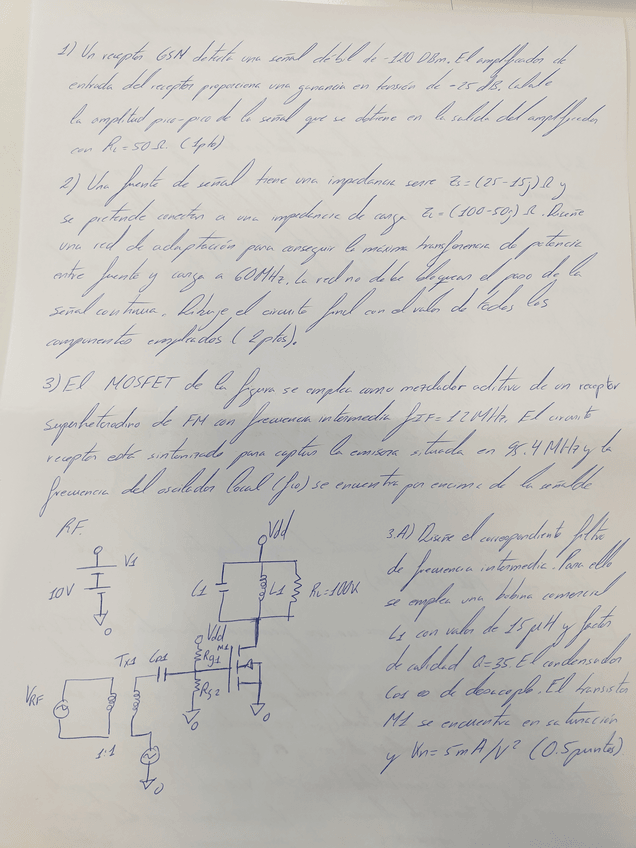 1) Un receptor GSM detecta una señal débil de -120 DBm. El amplificador de
entrada del receptor proporciona una ganancia en tensión de -25 dB. Calcule
la amplitud pico-pico de la señal que se obtiene en la salida del amplificador
con RL = 50 Ω. (1pto)
2) Una fuente de señal tiene una impedancia serie Zs = (25-15j) Ω y
se pretende conectar a una impedancia de carga ZL = (100-50j) Ω. Diseñe
una red de adaptación para conseguir la máxima transferencia de potencia
entre fuente y carga a 60MHz. La red no debe bloquear el paso de la
señal continua. Dibuje el circuito final con el valor de todos los
componentes empleados (2ptos).
3) El MOSFET de la figura se emplea como mezclador aditivo de un receptor
superheterodino de FM con frecuencia intermedia fIF = 12MHz. El circuito
receptor está sintonizado para captar la emisora situada en 98.4 MHz y la
frecuencia del oscilador local (flo) se encuentra por encima de la señal de
RF.
V1
10V
0
Vdd
C1
L1
RL=100K
Tx1
Co1
Vdd
Rg1
M1
Rg2
0
0
VRF
1:1
0
3.A) Diseñe el correspondiente filtro
de frecuencia intermedia. Para ello
se emplea una bobina comercial
L1 con valor de 15 μH y factor
de calidad Q=35. El condensador
Co1 es de desacoplo. El transistor
M1 se encuentra en saturación
y Kn = 5 mA/V² (0.5puntos)